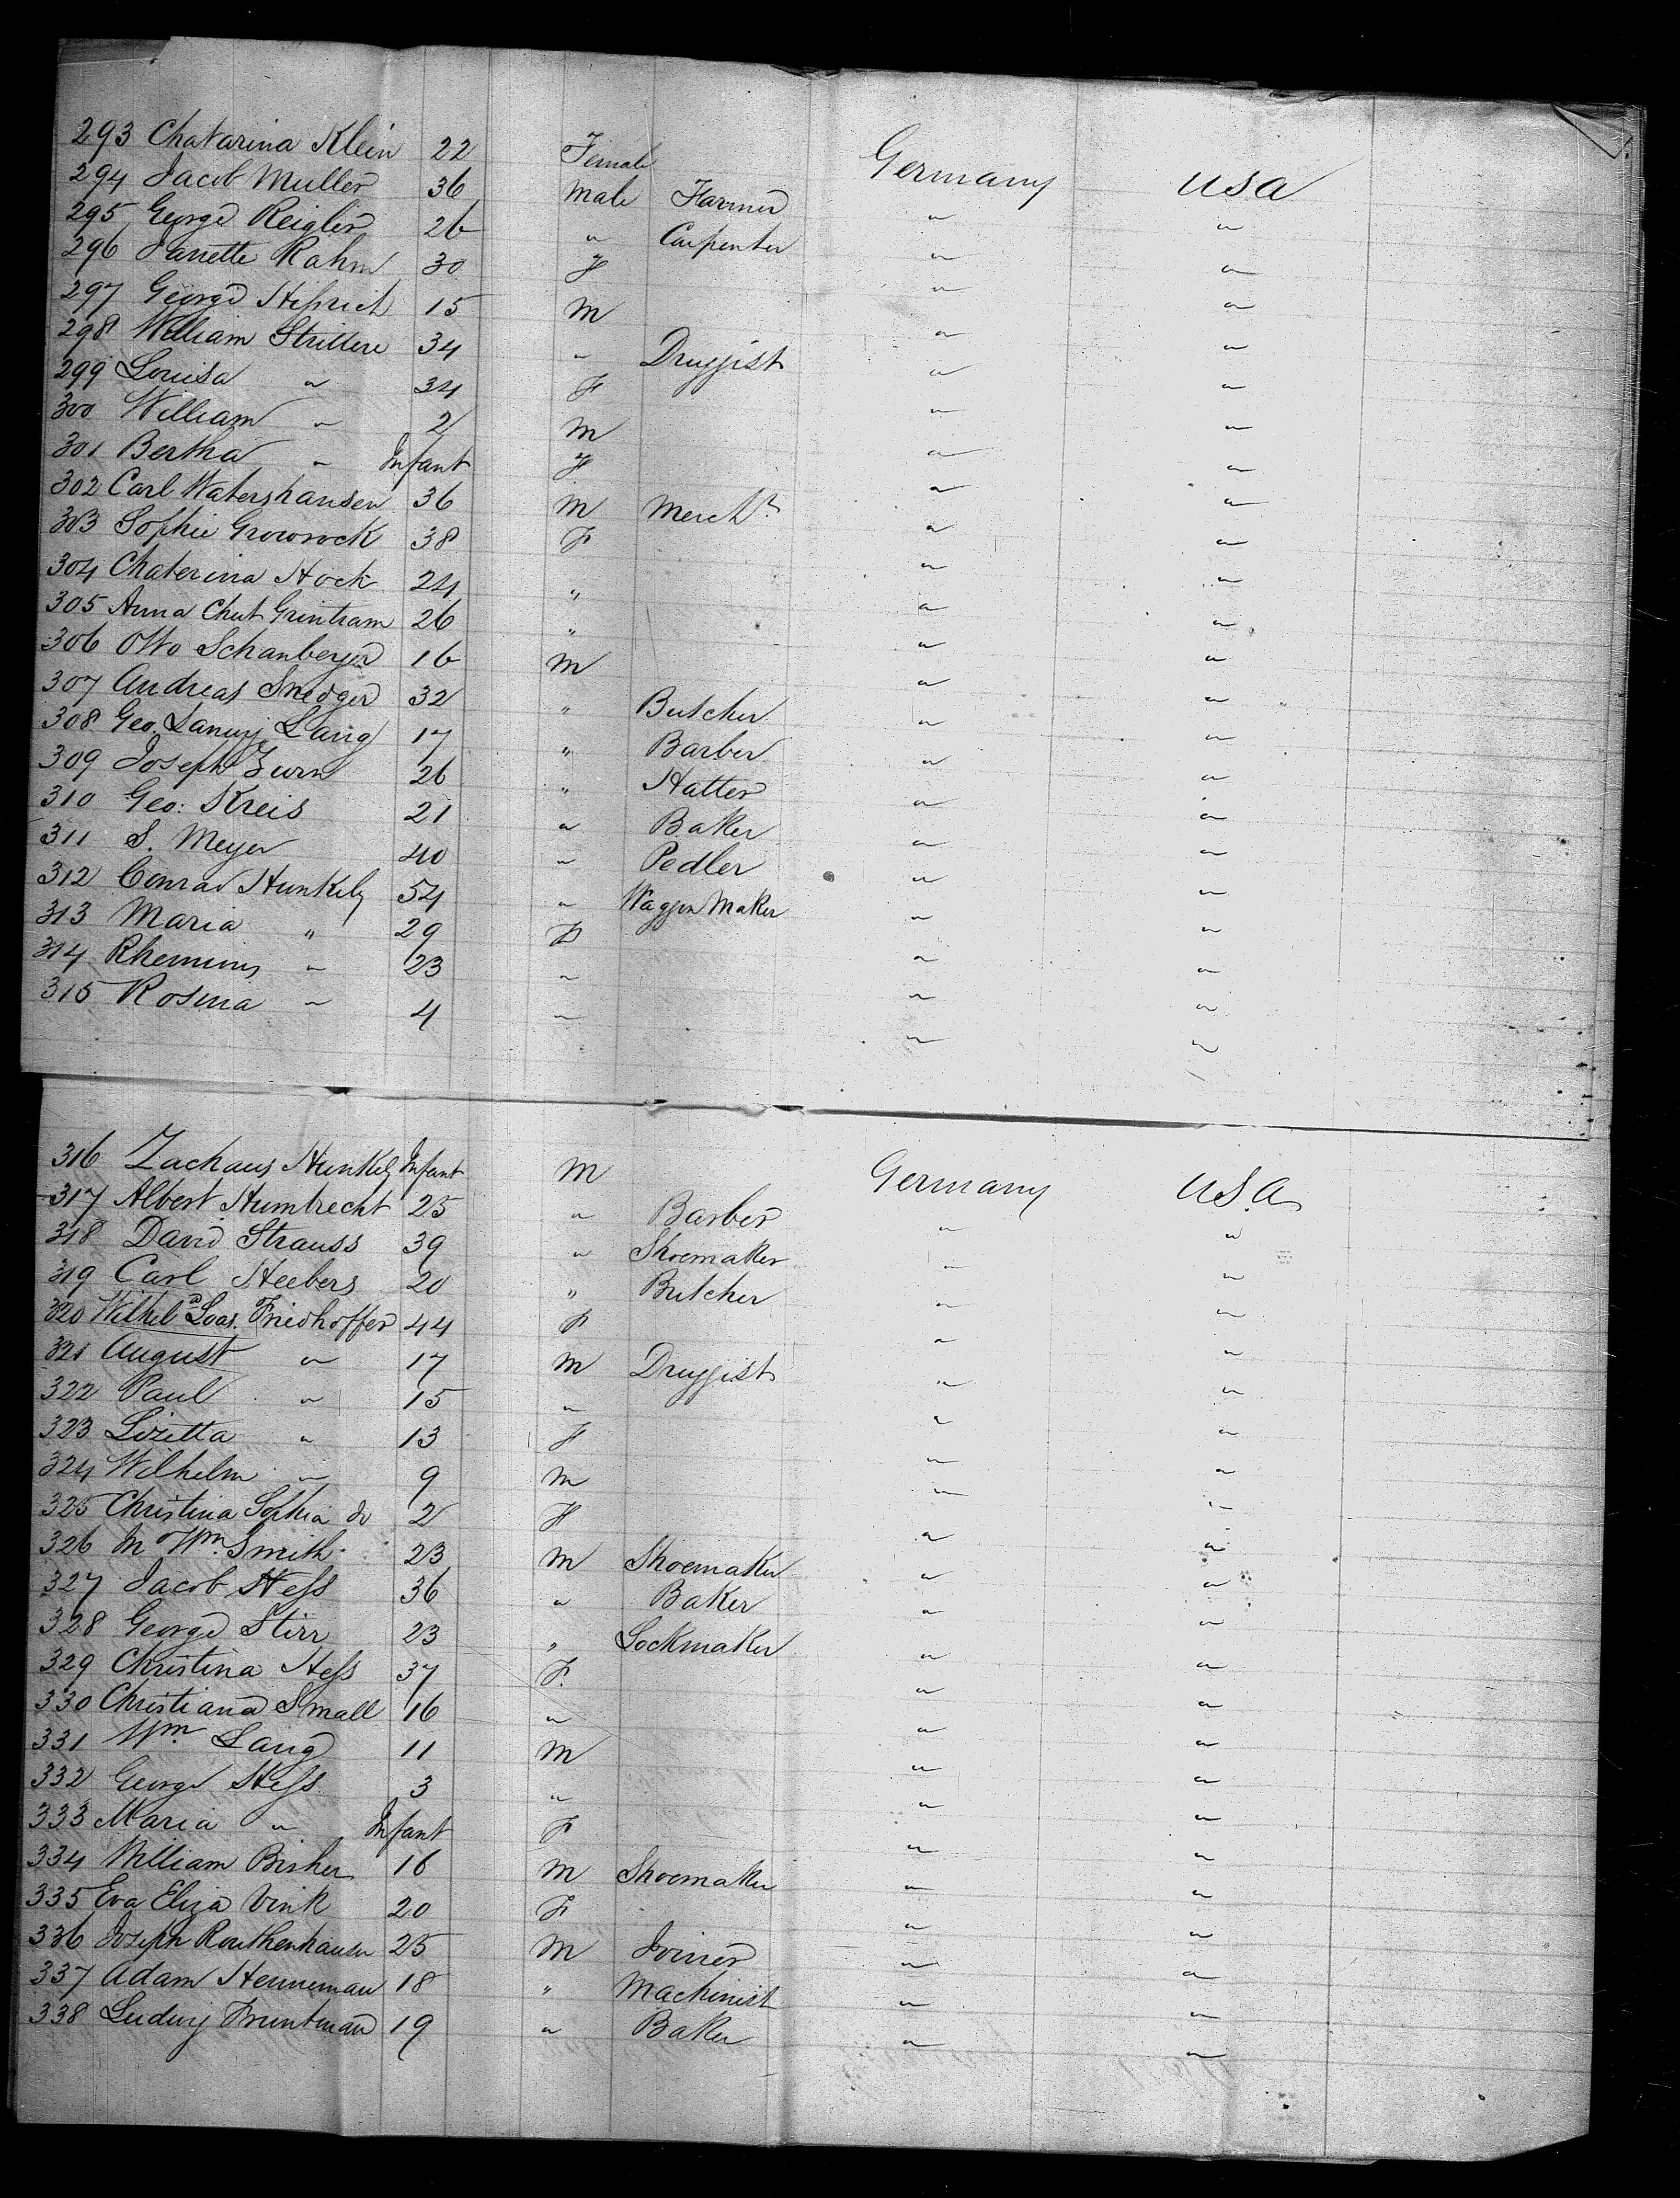 293 Chatarina Klein 22 Female Germany USA
294 Jacob Muller 36 Male Farmer " "
295 George Reigler 26 " Carpenter " "
296 Janette Rahm 30 F " "
297 George 15 M " "
298 William 34 " Druggist " "
299 Louisa " 34 F " "
300 William " 2 M " "
301 Bertha " Infant F " "
302 Carl Watershausen 36 M Merch.t " "
303 Sophie 38 F " "
304 Chaterina Hock 24 " " "
305 Anna Grintram 26 " " "
306 Otto Schanberger 16 M " "
307 Andreas 32 " Butcher " "
308 Geo. Lang 17 " Barber " "
309 Joseph Zurn 26 " Hatter " "
310 Geo: Kreis 21 " Baker " "
311 S. Meyer 40 " Pedler " "
312 Conrad Hunkily 54 " Waggon Maker " "
313 Maria " 29 F " "
314 " 23 " " "
315 Rosina " 4 " " "
316 Zachaus Hunkily Infant M Germany USA
317 Albert Humbrecht 25 " Barber " "
318 David Strauss 39 " Shoemaker " "
319 Carl Heebers 20 " Butcher " "
320 Friedhoffer 44 F " "
321 August " 17 M Druggist " "
322 Paul " 15 " " "
323 Lizetta " 13 F " "
324 Wilhelm " 9 M " "
325 Christina Sophia do 2 F " "
326 M Wm. Smith 23 M Shoemaker " "
327 Jacob Hess 36 " Baker " "
328 George Stirr 23 " Lockmaker " "
329 Christina Hess 37 F. " "
330 Christiana Small 16 " " "
331 Wm. Lang 11 M " "
332 George Hess 3 " " "
333 Maria " Infant F " "
334 William Bisher 16 M Shoemaker " "
335 Eva Eliza Vink 20 F " "
336 Joseph Routhenhauser 25 M Joiner " "
337 Adam Henneman 18 " Machinist " "
338 Ludwig 19 " Baker " "